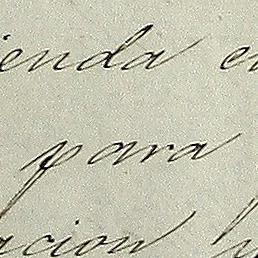 ienda en
para
acion